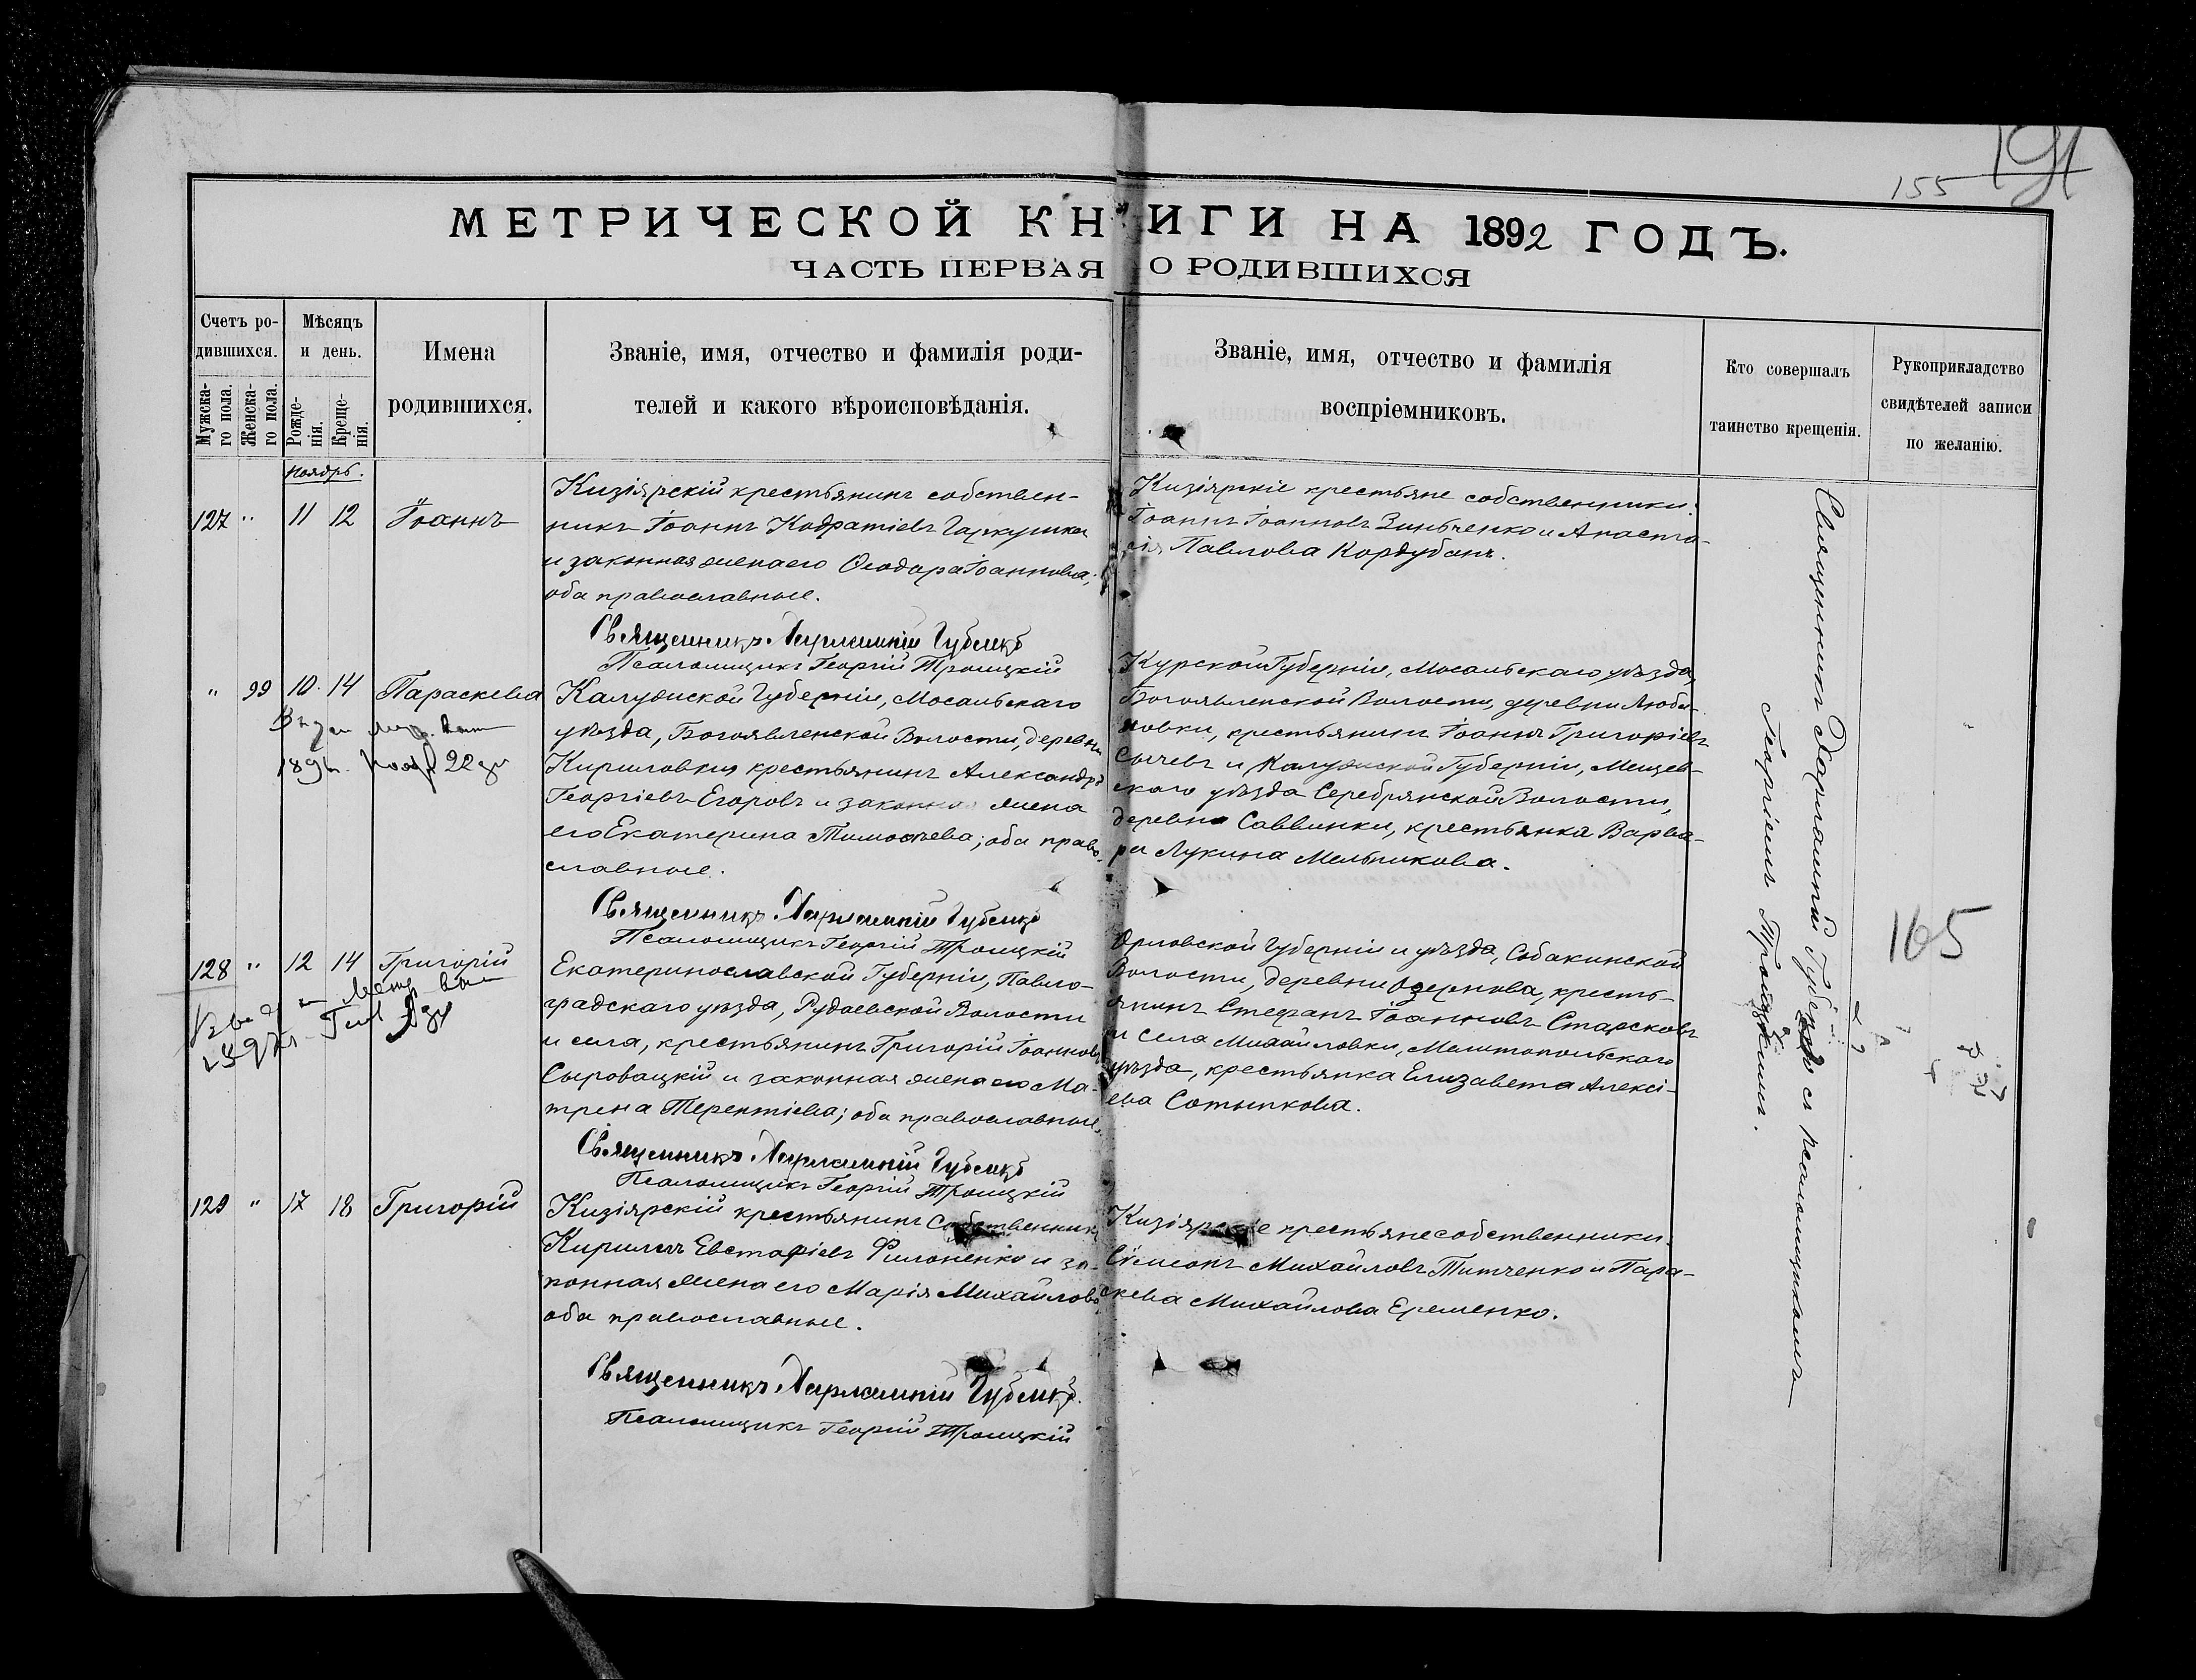 155 191
МЕТРИЧЕСКОЙ КНИГИ НА 1892 ГОДЪ.
ЧАСТЬ ПЕРВАЯ О РОДИВШИХСЯ
Счетъ ро-
дившихся.
Мужска-
го пола.
Женска-
го пола.
Мѣсяцъ
и день.
Рожде-
нія.
Креще-
нія.
Имена
родившихся.
Званіе, имя, отчество и фамилія роди-
телей и какого вѣроисповѣданія.
Званіе, имя, отчество и фамилія
воспріемниковъ.
Кто совершалъ
таинство крещенія.
Рукоприкладство
свидѣтелей записи
по желанію.
Ноябрь.
127 " 11 12 Іоаннъ
Кизіярскій крестьянинъ собствен-
никъ Іоаннъ Кодратіевъ Гаркушка
и законная жена его Ѳеодора Іоаннова;
оба православные.
Священникъ Харлампій Губскій
Псаломщикъ Георгій Троицкій
Кизіярскіе крестьяне собственники:
Іоаннъ Іоанновъ Зинченко и Анаста-
сія Павлова Кордубанъ.
" 99 10 14 Параскева
189 Нояб 22 дн
Калужской Губерніи, Мосальскаго
уѣзда, Богоявленской Волости, деревни
Кириловки крестьянинъ Александръ
Георгіевъ Егоровъ и законная жена
его Екатерина Тимоѳеева; оба право-
славные.
Священникъ Харлампій Губскій
Псаломщикъ Георгій Троицкій
Курской Губерніи, Мосальскаго уѣзда,
Богоявленской Волости, деревни Люби-
мовки, крестьянинъ Іоаннъ Григоріевъ
Сычевъ и Калужской Губерніи, Мещев-
скаго уѣзда Серебрянской Волости,
деревни Саввинки, крестьянка Варва-
ра Лукина Мельникова.
128 " 12 14 Григорій
Екатеринославской Губерніи, Павло-
градскаго уѣзда, Рудаевской Волости
и села, крестьянинъ Григорій Іоанновъ
Сыровацкій и законная жена его Ма-
трена Терентіева; оба православные.
Священникъ Харлампій Губскій
Псаломщикъ Георгій Троицкій
Орловской Губерніи и уѣзда, Собакинской
Волости, деревни Озернова, кресть-
янинъ Стефанъ Іоанновъ Старсковъ
и села Михайловки, Мелитопольскаго
уѣзда, крестьянка Елизавета Алексі-
ева Сотникова.
129 " 17 18 Григорій
Кизіярскій крестьянинъ Собственникъ
Кириллъ Евстафіевъ Филоненко и за-
конная жена его Марія Михайлова
оба православные.
Священникъ Харлампій Губскій
Псаломщикъ Георгій Троицкій
Кизіярскіе крестьяне собственники:
Сѵмеонъ Михайловъ Титченко и Пара-
скева Михайлова Еременко.
Священникъ Харлампій Губскій съ псаломщикомъ
Георгіемъ Троицкимъ.
165